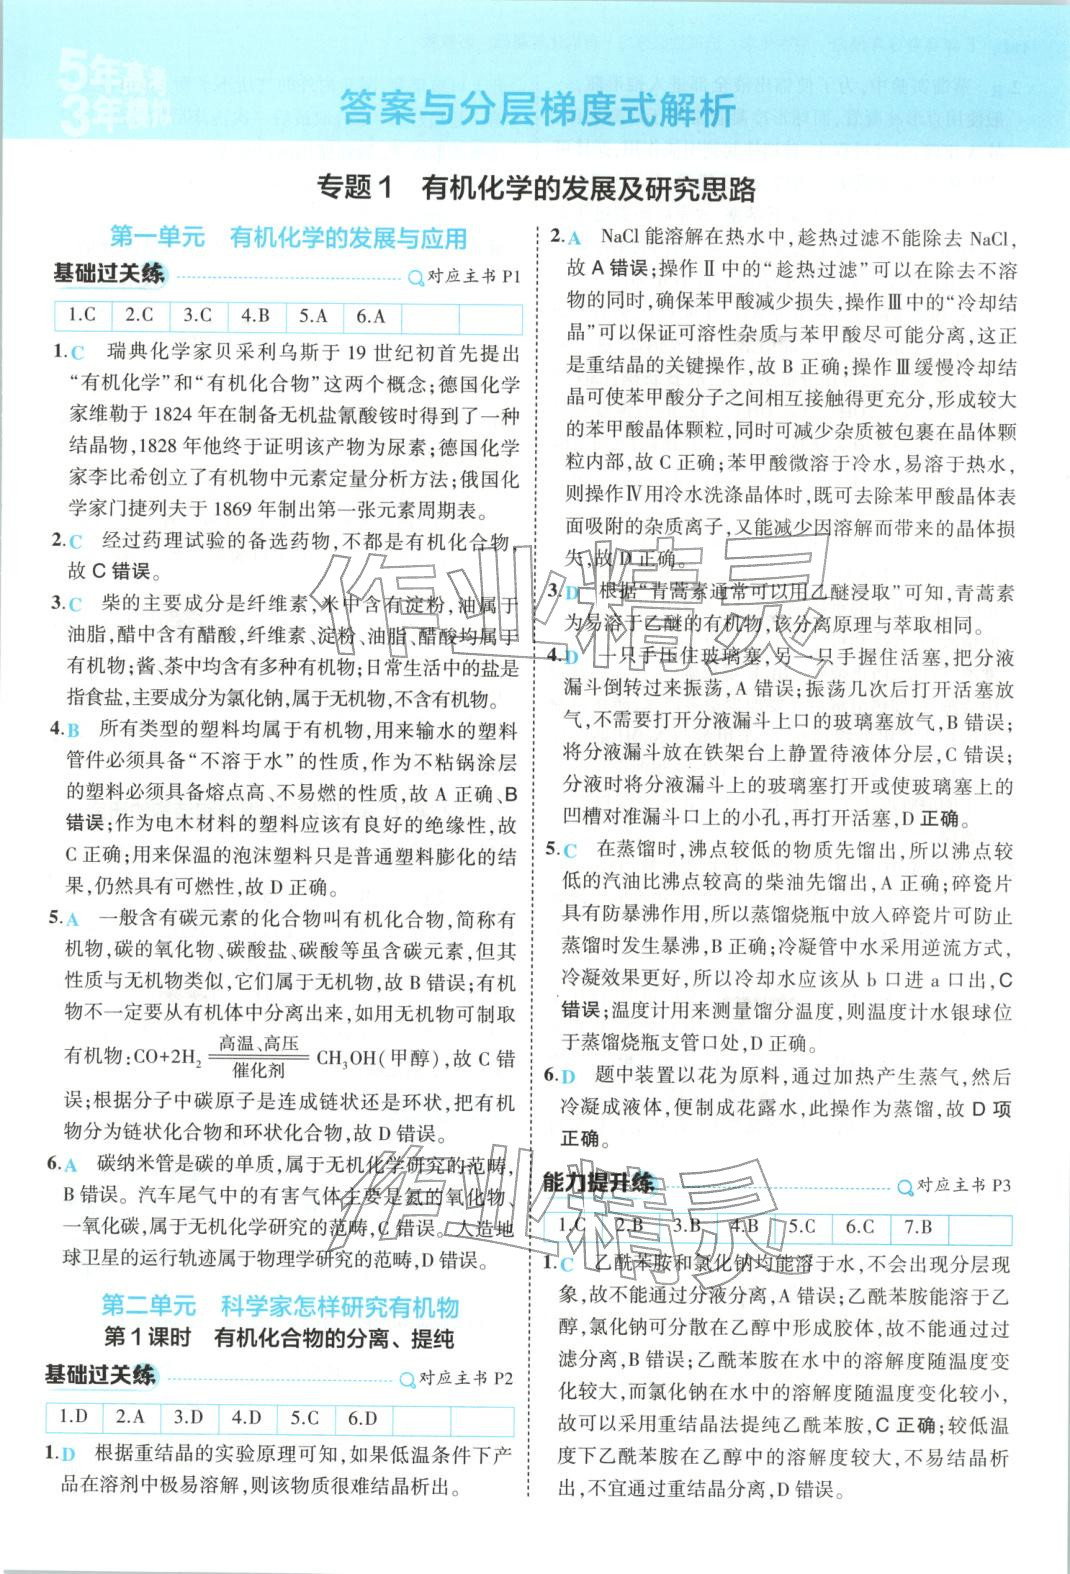 5年高考
3年模拟
答案与分层梯度式解析
专题1 有机化学的发展及研究思路
第一单元 有机化学的发展与应用
基础过关练 对应主书 P1
1.C 2.C 3.C 4.B 5.A 6.A
1.C 瑞典化学家贝采利乌斯于 19 世纪初首先提出
“有机化学”和“有机化合物”这两个概念；德国化学
家维勒于 1824 年在制备无机盐氰酸铵时得到了一种
结晶物,1828 年他终于证明该产物为尿素；德国化
学家李比希创立了有机物中元素定量分析方法；俄国化
学家门捷列夫于 1869 年制出第一张元素周期表。
2.C 经过药理试验的备选药物,不都是有机化合物,
故 C 错误。
3.C 柴的主要成分是纤维素,米中含有淀粉,油属于
油脂,醋中含有醋酸,纤维素、淀粉、油脂、醋酸均属于
有机物；酱、茶中均含有多种有机物；日常生活中的盐是
指食盐,主要成分为氯化钠,属于无机物,不含有机物。
4.B 所有类型的塑料均属于有机物,用来输水的塑料
管件必须具备“不溶于水”的性质,作为不粘锅涂层
的塑料必须具备熔点高、不易燃的性质,故 A 正确、B
错误；作为电木材料的塑料应该有良好的绝缘性,故
C 正确；用来保温的泡沫塑料只是普通塑料膨化的结
果,仍然具有可燃性,故 D 正确。
5.A 一般含有碳元素的化合物叫有机化合物,简称有
机物,碳的氧化物、碳酸盐、碳酸等虽含碳元素,但其
性质与无机物类似,它们属于无机物,故 B 错误；有机
物不一定要从有机体中分离出来,如用无机物可制取
有机物：CO+2H₂ 高温、高压 催化剂 CH₃OH(甲醇),故 C 错
误；根据分子中碳原子是连成链状还是环状,把有机
物分为链状化合物和环状化合物,故 D 错误。
6.A 碳纳米管是碳的单质,属于无机化学研究的范畴,
B 错误。汽车尾气中的有害气体主要是氮的氧化物、
一氧化碳,属于无机化学研究的范畴,C 错误。人造地
球卫星的运行轨迹属于物理学研究的范畴,D 错误。
第二单元 科学家怎样研究有机物
第 1 课时 有机化合物的分离、提纯
基础过关练 对应主书 P2
1.D 2.A 3.D 4.D 5.C 6.D
1.D 根据重结晶的实验原理可知,如果低温条件下产
品在溶剂中极易溶解,则该物质很难结晶析出。
2.A NaCl 能溶解在热水中,趁热过滤不能除去 NaCl,
故 A 错误；操作Ⅱ中的“趁热过滤”可以在除去不溶
物的同时,确保苯甲酸减少损失,操作Ⅲ中的“冷却结
晶”可以保证可溶性杂质与苯甲酸尽可能分离,这正
是重结晶的关键操作,故 B 正确；操作Ⅲ缓慢冷却结
晶可使苯甲酸分子之间相互接触得更充分,形成较大
的苯甲酸晶体颗粒,同时可减少杂质被包裹在晶体颗
粒内部,故 C 正确；苯甲酸微溶于冷水,易溶于热水,
则操作Ⅳ用冷水洗涤晶体时,既可去除苯甲酸晶体表
面吸附的杂质离子,又能减少因溶解而带来的晶体损
失,故 D 正确。
3.D 根据“青蒿素通常可以用乙醚浸取”可知,青蒿素
为易溶于乙醚的有机物,该分离原理与萃取相同。
4.D 一只手压住玻璃塞,另一只手握住活塞,把分液
漏斗倒转过来振荡,A 错误；振荡几次后打开活塞放
气,不需要打开分液漏斗上口的玻璃塞放气,B 错误；
将分液漏斗放在铁架台上静置待液体分层,C 错误；
分液时将分液漏斗上的玻璃塞打开或使玻璃塞上的
凹槽对准漏斗口上的小孔,再打开活塞,D 正确。
5.C 在蒸馏时,沸点较低的物质先馏出,所以沸点较
低的汽油比沸点较高的柴油先馏出,A 正确；碎瓷片
具有防暴沸作用,所以蒸馏烧瓶中放入碎瓷片可防止
蒸馏时发生暴沸,B 正确；冷凝管中水采用逆流方式,
冷凝效果更好,所以冷却水应该从 b 口进 a 口出,C
错误；温度计用来测量馏分温度,则温度计水银球位
于蒸馏烧瓶支管口处,D 正确。
6.D 题中装置以花为原料,通过加热产生蒸气,然后
冷凝成液体,便制成花露水,此操作为蒸馏,故 D 项
正确。
能力提升练 对应主书 P3
1.C 2.B 3.B 4.B 5.C 6.C 7.B
1.C 乙酰苯胺和氯化钠均能溶于水,不会出现分层现
象,故不能通过分液分离,A 错误；乙酰苯胺能溶于乙
醇,氯化钠可分散在乙醇中形成胶体,故不能通过过
滤分离,B 错误；乙酰苯胺在水中的溶解度随温度变
化较大,而氯化钠在水中的溶解度随温度变化较小,
故可以采用重结晶法提纯乙酰苯胺,C 正确；较低温
度下乙酰苯胺在乙醇中的溶解度较大,不易结晶析
出,不宜通过重结晶分离,D 错误。
作业精灵
作业精灵